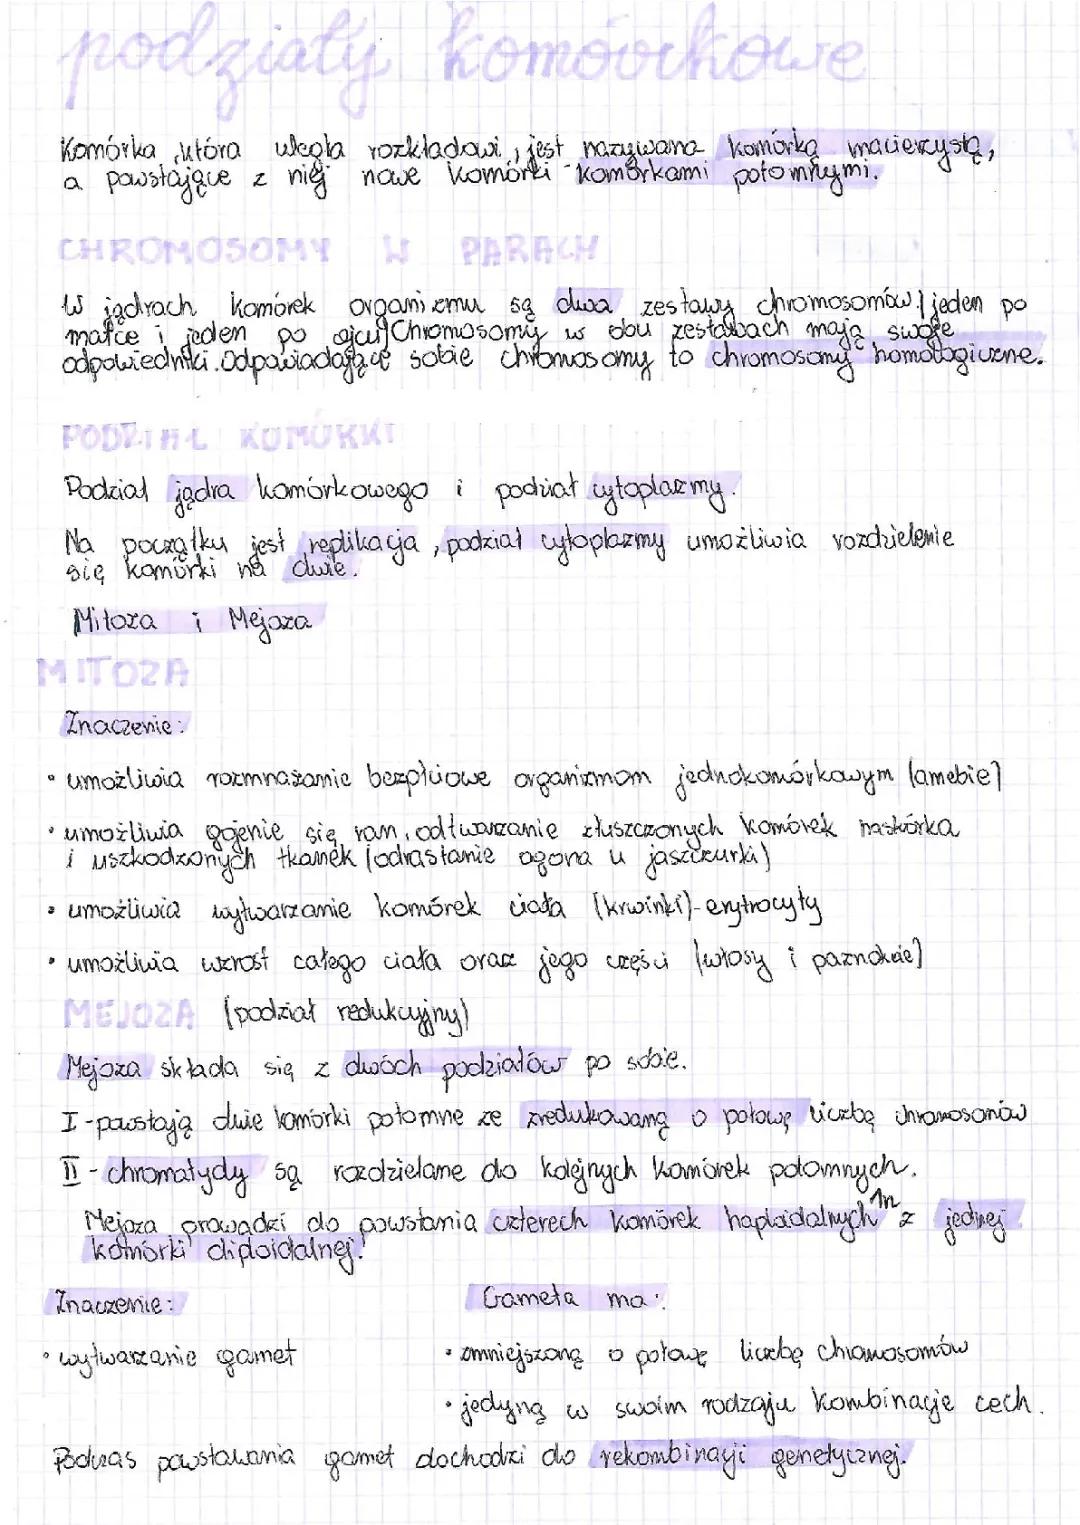 podziały komórkowe
Komórka, która uległa rozkładowi, jest nazywana komórką macierzystą,
a powstające z niej nowe komórki - komórkami potomnymi.
CHROMOSOMY W PARACH
W jądrach komórek organizmu są dwa zestawy chromosomów (jeden po
matce i jeden po ojcu) Chromosomy w obu zestawach mają swoje
odpowiedniki. Odpowiadające sobie chromosomy to chromosomy homologiczne.
PODZIAŁ KOMÓRKI
Podział jądra komórkowego i podział cytoplazmy.
Na początku jest replikacja, podział cytoplazmy umożliwia rozdzielenie
się komórki na dwie.
Mitoza i Mejoza
MITOZA
Znaczenie:
• umożliwia rozmnażanie bezpłciowe organizmom jednokomórkowym (amebie)
• umożliwia gojenie się ran, odtwarzanie złuszczonych komórek naskórka
i uszkodzonych tkanek (odrastanie ogona u jaszczurki)
• umożliwia wytwarzanie komórek ciała (krwinki) - erytrocyty
• umożliwia wzrost całego ciała oraz jego części (włosy i paznokcie)
MEJOZA (podział redukcyjny)
Mejoza składa się z dwóch podziałów po sobie.
I - powstają dwie komórki potomne ze zredukowaną o połowę liczbą chromosomów
II - chromatydy są rozdzielane do kolejnych komórek potomnych.
Mejoza prowadzi do powstania czterech komórek haploidalnych 1n z jednej
komórki diploidalnej.
Znaczenie:
• wytwarzanie gamet
Gameta ma:
• zmniejszoną o połowę liczbę chromosomów
• jedyną w swoim rodzaju kombinacje cech.
Podczas powstawania gamet dochodzi do rekombinacji genetycznej.